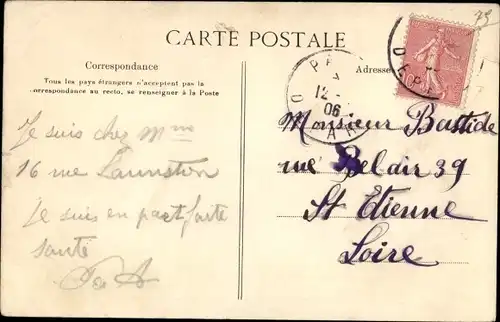 CARTE POSTALE
Correspondance
Tous les pays étrangers n'acceptent pas la
correspondance au recto, se renseigner à la Poste
Je suis chez Mme
16 rue Lauriston
Je suis en parfaite
santé
Adresse
12
06
Monsieur Bastide
rue Bel air 39
St Etienne
Loire